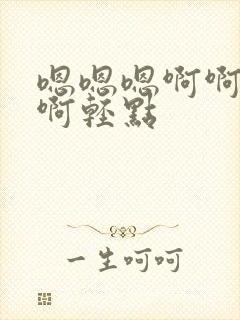 嗯嗯嗯啊啊
啊轻點
一生呵呵